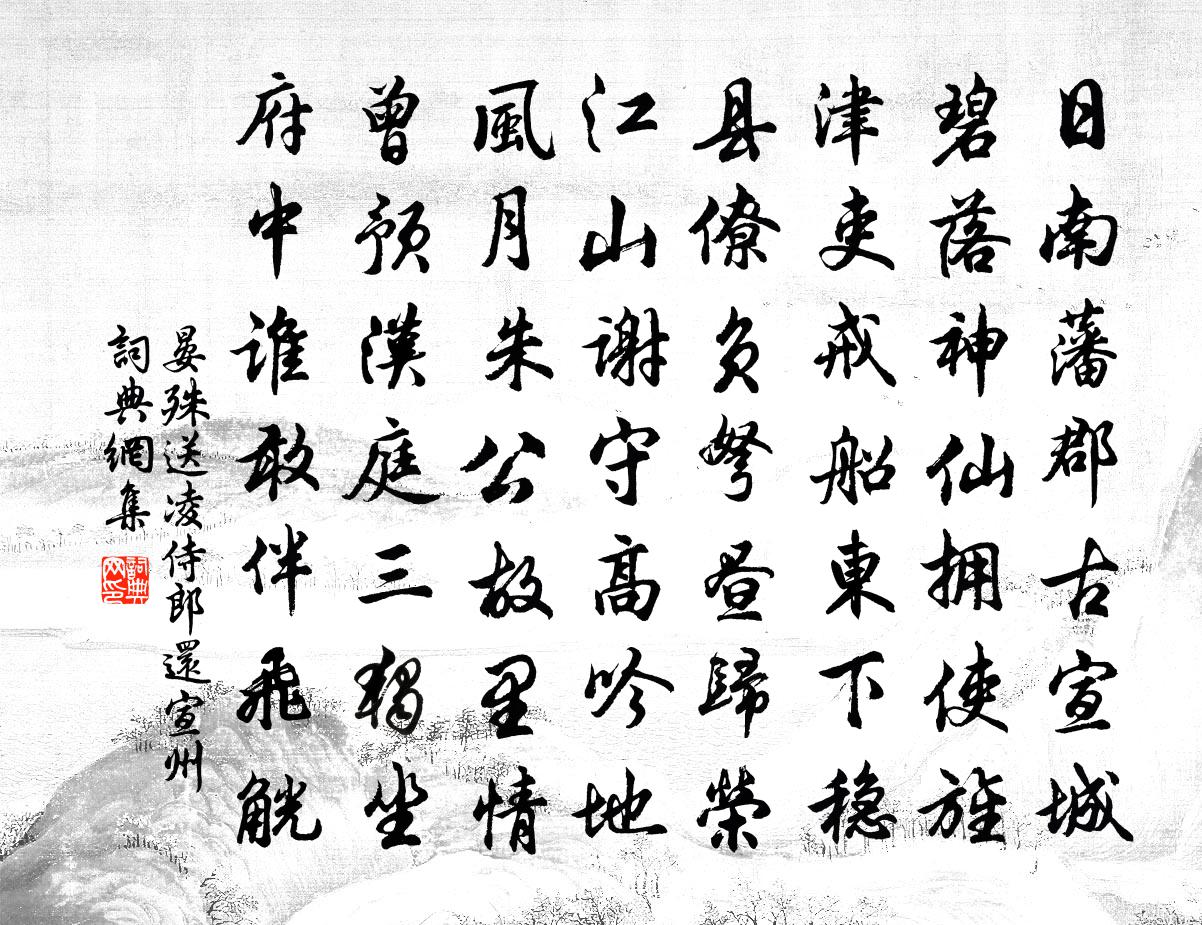 日南藩郡古宣城
碧落神仙拥使旌
津吏戒船東下稳
县僚负弩昼歸榮
江山謝守高吟地
風月朱公故里情
曾预漢庭三獨坐
府中誰敢伴飛觥
晏殊送凌侍郎還宣州
詞典網集
詞典网印